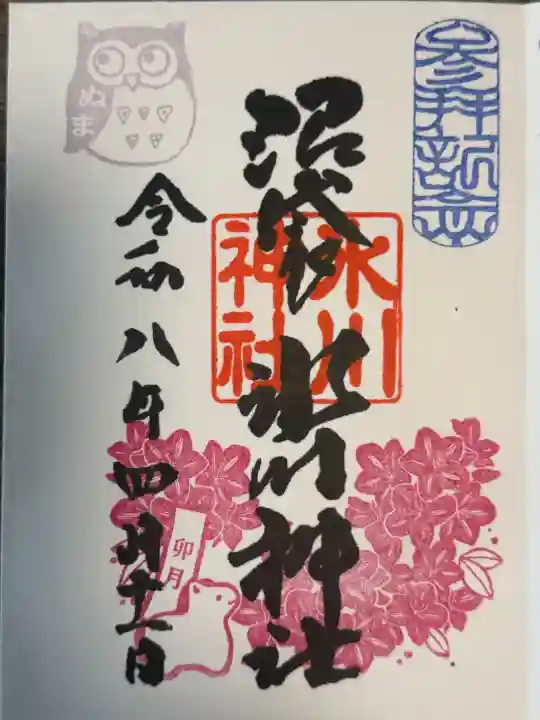 参拝記念
沼袋 氷川神社
氷川
神社
令和八年四月十一日
卯月
ぬま